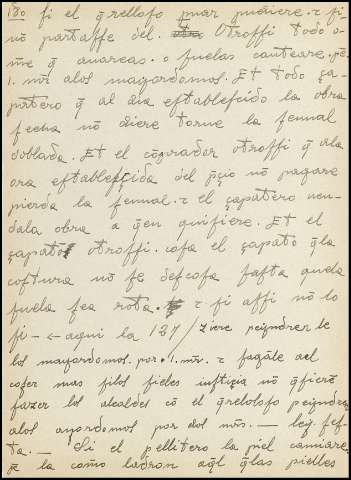 130 si el q̃relloso puar pudiere. τ si
nõ partasse del. Otrossi todo o-
m̃e q̃ auarcas. o suelas 
.I. mr̃ alos mayordomos. Et todo ça-
patero q̃ al dia establescido la obra
fecha nõ diere torne la sennal
doblada. Et el cõprador otrossi q̃ ala
ora establesçida del p̃çio nõ pagare
pierda la sennal. τ el çapatero uen-
dala obra a q̃en quisiere. Et el
çapato otrossi. cosa el çapato q̃la
costura nõ se descosa fasta quela
suela sea rota. τ si assi nõ lo
fi- ← aqui la 127/ziere peyndrenle
los mayordomos. por .I. mr̃. τ fagãle ael
coser mas silos fieles iustiçia nõ q̃sierẽ
fazer los alcaldes cõ el q̃relloso peyndren
alos mayordomos por dos mr̃s. — ley. ses-
ta. — Si el pellitero la piel camiare.
p̃ la como ladron aq̃l q̃las pielles